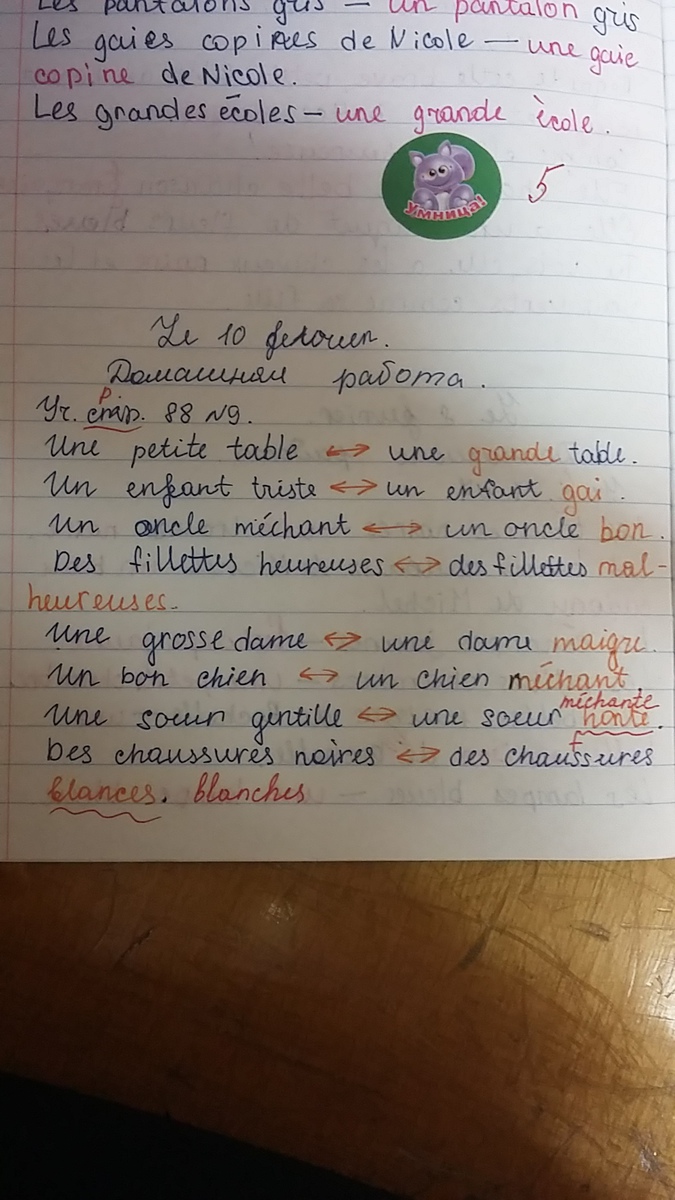 Les pantalons gris — un pantalon gris
Les gaies copines de Nicole — une gaie
copine de Nicole.
Les grandes écoles — une grande ècole.
Умница!
5
Le 10
Домашняя работа.
р
Уч. стр. 88 N9.
Une petite table ↔ une grande table.
Un enfant triste ↔ un enfant gai.
Un oncle méchant ↔ un oncle bon.
Des fillettes heureuses ↔ des fillettes mal-
heureuses.
Une grosse dame ↔ une dame maigre.
Un bon chien ↔ un chien méchant
méchante
Une sœur gentille ↔ une soeur honte.
Des chaussures noires ↔ des chaussures
blances. blanches